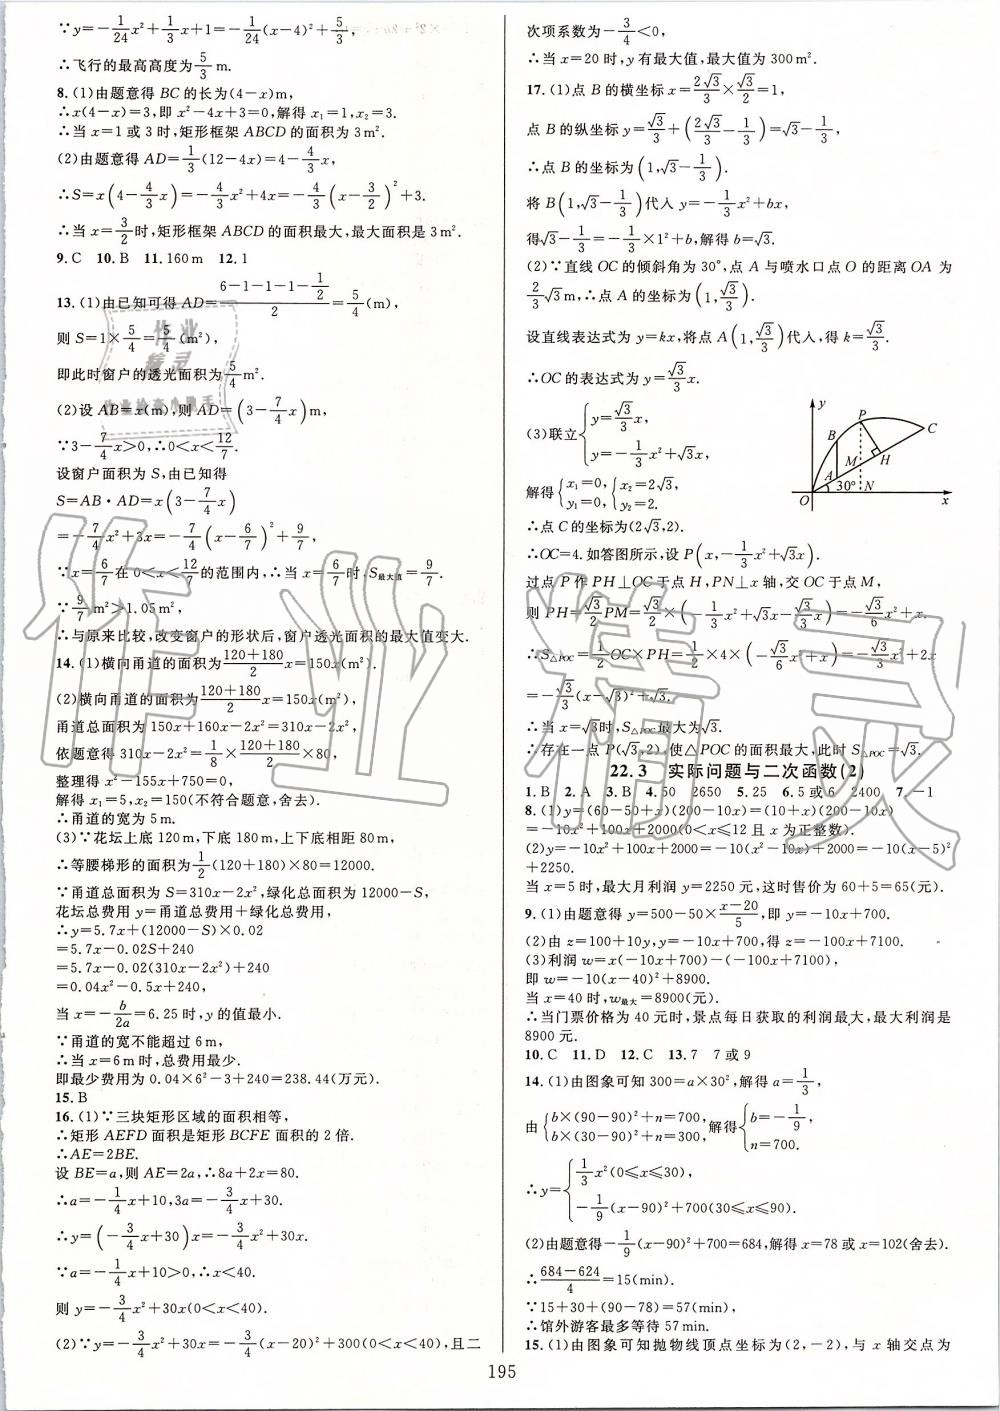 ∵y=-1/24x²+1/3x+1=-1/24(x-4)²+5/3,
∴飞行的最高高度为5/3m.
8.(1)由题意得BC的长为(4-x)m,
∴x(4-x)=3,即x²-4x+3=0,解得x₁=1,x₂=3.
∴当x=1或3时,矩形框架ABCD的面积为3m².
(2)由题意得AD=1/3(12-4x)=4-4/3x,
∴S=x(4-4/3x)=-4/3x²+4x=-4/3(x-3/2)²+3.
∴当x=3/2时,矩形框架ABCD的面积最大,最大面积是3m².
9.C 10.B 11.160m 12.1
13.(1)由已知可得AD=(6-1-1-1-1/2)/2=5/4(m),
则S=1×5/4=5/4(m²),
即此时窗户的透光面积为5/4m².
(2)设AB=x(m),则AD=(3-7/4x)m,
∵3-7/4x>0,∴0<x<12/7.
设窗户面积为S,由已知得
S=AB·AD=x(3-7/4x)
=-7/4x²+3x=-7/4(x-6/7)²+9/7,
∵x=6/7在0<x<12/7的范围内,∴当x=6/7时,S最大值=9/7.
∵9/7m²>1.05m²,
∴与原来比较,改变窗户的形状后,窗户透光面积的最大值变大.
14.(1)横向甬道的面积为(120+180)/2x=150x(m²).
(2)横向甬道的面积为(120+180)/2x=150x(m²),
甬道总面积为150x+160x-2x²=310x-2x²,
依题意得310x-2x²=1/8×(120+180)/2×80,
整理得x²-155x+750=0,
解得x₁=5,x₂=150(不符合题意,舍去).
∴甬道的宽为5m.
(3)∵花坛上底120m,下底180m,上下底相距80m,
∴等腰梯形的面积为1/2(120+180)×80=12000.
∵甬道总面积为S=310x-2x²,绿化总面积为12000-S,
花坛总费用y=甬道总费用+绿化总费用,
∴y=5.7x+(12000-S)×0.02
=5.7x-0.02S+240
=5.7x-0.02(310x-2x²)+240
=0.04x²-0.5x+240,
当x=-b/2a=6.25时,y的值最小.
∵甬道的宽不能超过6m,
∴当x=6m时,总费用最少.
即最少费用为0.04×6²-3+240=238.44(万元).
15.B
16.(1)∵三块矩形区域的面积相等,
∴矩形AEFD面积是矩形BCFE面积的2倍.
∴AE=2BE.
设BE=a,则AE=2a,∴8a+2x=80.
∴a=-1/4x+10,3a=-3/4x+30.
∴y=(-3/4x+30)x=-3/4x²+30x.
∵a=-1/4x+10>0,∴x<40.
则y=-3/4x²+30x(0<x<40).
(2)∵y=-3/4x²+30x=-3/4(x-20)²+300(0<x<40),且二
次项系数为-3/4<0,
∴当x=20时,y有最大值,最大值为300m².
17.(1)点B的横坐标x=2√3/3×√3/2=1,
点B的纵坐标y=√3/3+(2√3/3-1/3)=√3-1/3,
∴点B的坐标为(1,√3-1/3).
将B(1,√3-1/3)代入y=-1/3x²+bx,
得√3-1/3=-1/3×1²+b,解得b=√3.
(2)∵直线OC的倾斜角为30°,点A与喷水口点O的距离OA为
2/3√3m,∴点A的坐标为(1,√3/3).
设直线表达式为y=kx,将点A(1,√3/3)代入,得k=√3/3.
∴OC的表达式为y=√3/3x.
(3)联立{y=√3/3x, y=-1/3x²+√3x,
解得{x₁=0, y₁=0, {x₂=2√3, y₂=2.
y
P
B
C
M
H
A
30°
O
N
x
∴点C的坐标为(2√3,2).
∴OC=4.如答图所示,设P(x,-1/3x²+√3x).
过点P作PH⊥OC于点H,PN⊥x轴,交OC于点M,
则PH=√3/2PM=√3/2×(-1/3x²+√3x-√3/3x)=-√3/6x²+x.
∴S△POC=1/2OC×PH=1/2×4×(-√3/6x²+x)=-√3/3x²+2x
=-√3/3(x-√3)²+√3.
∴当x=√3时,S△POC最大为√3.
∴存在一点P(√3,2),使△POC的面积最大,此时S△POC=√3.
22.3 实际问题与二次函数(2)
1.B 2.A 3.B 4.50 2650 5.25 6.5或6 2400 7.-1
8.(1)y=(60-50+x)(200-10x)=(10+x)(200-10x)
=-10x²+100x+2000(0<x≤12且x为正整数).
(2)y=-10x²+100x+2000=-10(x²-10x)+2000=-10(x-5)²
+2250.
当x=5时,最大月利润y=2250元,这时售价为60+5=65(元).
9.(1)由题意得y=500-50×(x-20)/5,即y=-10x+700.
(2)由z=100+10y,y=-10x+700,得z=-100x+7100.
(3)利润w=x(-10x+700)-(-100x+7100),
即w=-10(x-40)²+8900.
当x=40时,w最大=8900(元).
∴当门票价格为40元时,景点每日获取的利润最大,最大利润是
8900元.
10.C 11.D 12.C 13.7 7或9
14.(1)由图象可知300=a×30²,解得a=1/3,
由{b×(90-90)²+n=700, b×(30-90)²+n=300,解得{b=-1/9, n=700.
∴y={1/3x²(0≤x≤30), -1/9(x-90)²+700(30≤x≤90).
(2)由题意得-1/9(x-90)²+700=684,解得x=78或x=102(舍去).
∴(684-624)/4=15(min).
∵15+30+(90-78)=57(min),
∴馆外游客最多等待57min.
15.(1)由图象可知抛物线顶点坐标为(2,-2),与x轴交点为
195
作业精灵